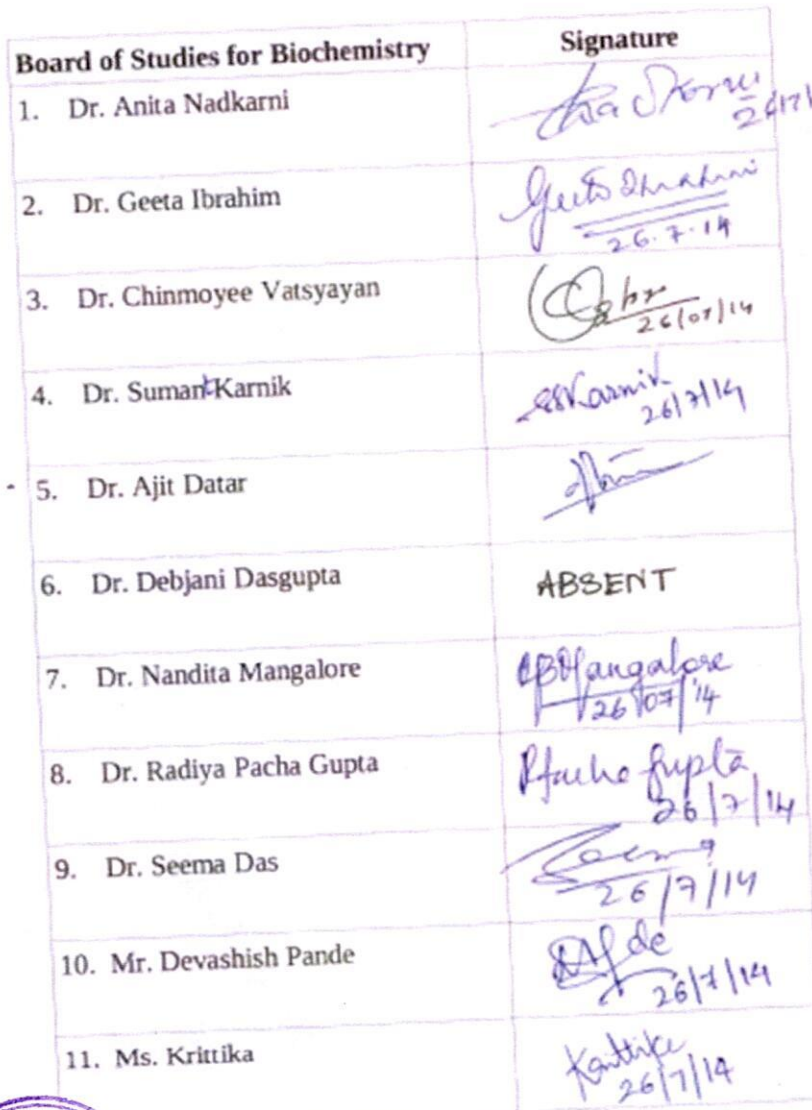 Board of Studies for Biochemistry Signature
1. Dr. Anita Nadkarni
2. Dr. Geeta Ibrahim
26.7.14
3. Dr. Chinmoyee Vatsyayan
26/07/14
4. Dr. Suman Karnik Karnik
26/7/14
5. Dr. Ajit Datar
6. Dr. Debjani Dasgupta ABSENT
7. Dr. Nandita Mangalore Mangalore
26/07/'14
8. Dr. Radiya Pacha Gupta Pacha Gupta
26/7/14
9. Dr. Seema Das Seema
26/7/14
10. Mr. Devashish Pande
26/7/14
11. Ms. Krittika Krittika
26/7/14